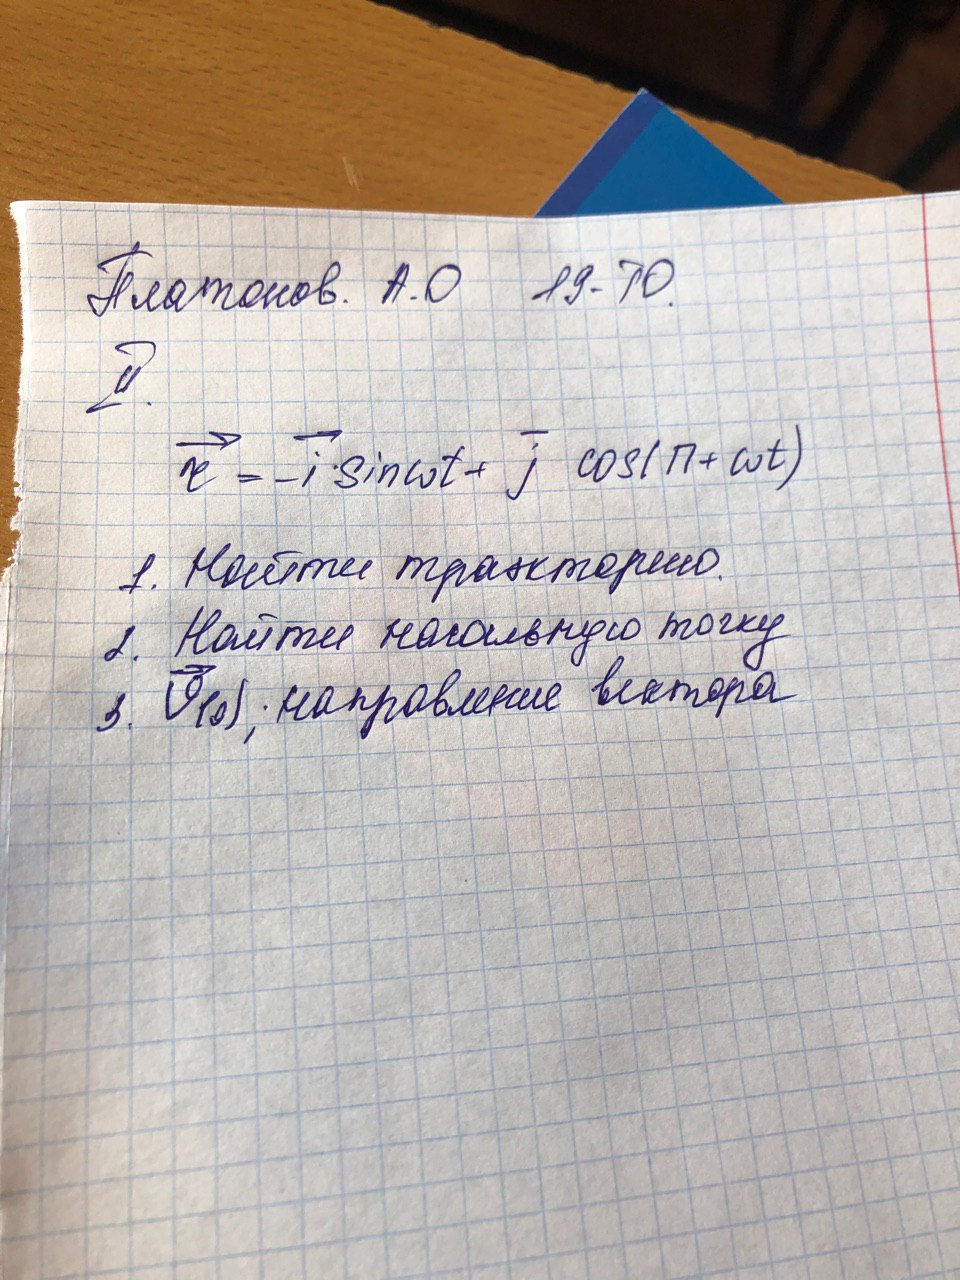 Платонов. А.О 19-ТО.
II.
r⃗ = -i⃗ · sin ωt + j̄ cos(π + ωt)
1. Найти траекторию.
2. Найти начальную точку
3. v⃗(0); направление вектора